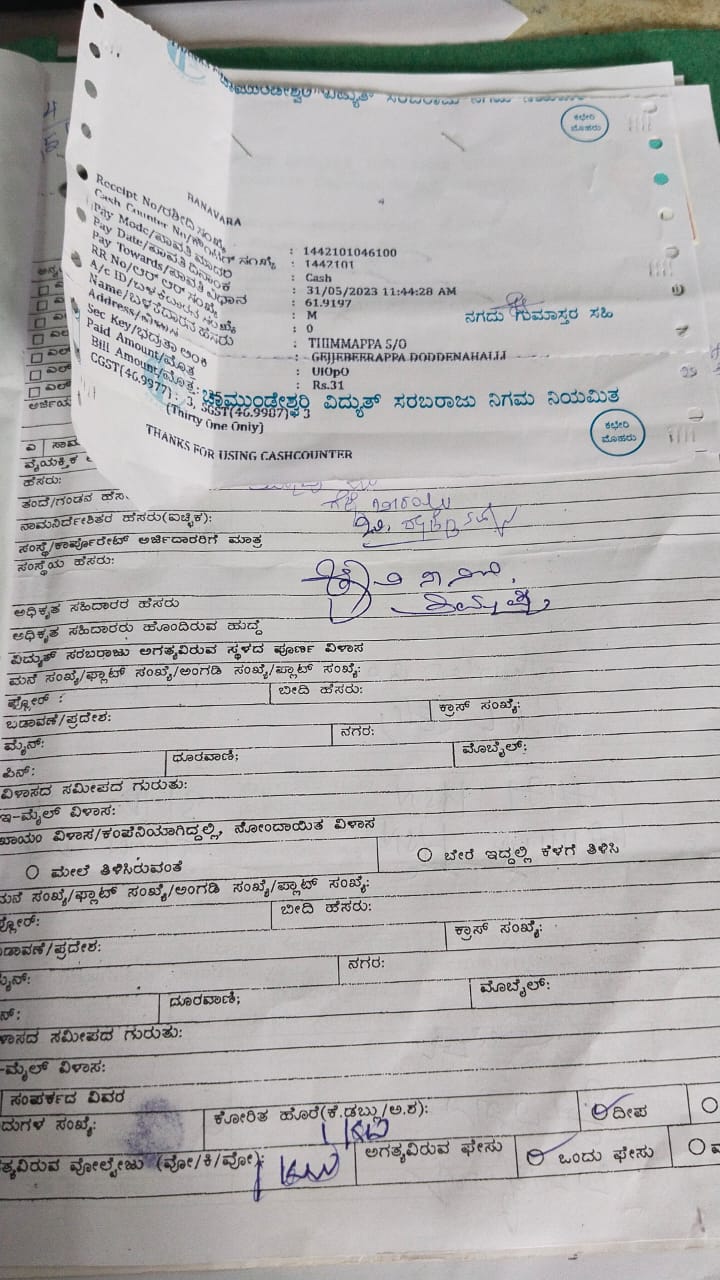 ಚಾಮುಂಡೇಶ್ವರಿ ವಿದ್ಯುತ್ ಸರಬರಾಜು ನಿಗಮ
ಕಛೇರಿ ಮೊಹರು
BANAVARA
Receipt No/ರಶೀದಿ ಸಂಖ್ಯೆ : 1442101046100
Cash Counter No/ಕೌಂಟರ್ ಸಂಖ್ಯೆ : 1442101
Pay Mode/ಪಾವತಿ ಮಾದರಿ : Cash
Pay Date/ಪಾವತಿ ದಿನಾಂಕ : 31/05/2023 11:44:28 AM
Pay Towards/ಪಾವತಿ ವಿಧಾನ : 61.9197
RR No/ಆರ್ ಆರ್ ಸಂಖ್ಯೆ : M
A/c ID/ಬಳಕೆದಾರನ ಸಂಖ್ಯೆ : 0
Name/ಬಳಕೆದಾರನ ಹೆಸರು : THIMMAPPA S/O
Address/ವಿಳಾಸ : GEJJEBEERAPPA DODDENAHALLI
Sec Key/ಭದ್ರತಾ ಅಂಕಿ : UIOpO
Paid Amount/ಮೊತ್ತ : Rs.31
Bill Amount/ಮೊತ್ತ:
CGST(46.9977) : 3, SGST(46.9987) : 3
(Thirty One Only)
ನಗದು ಗುಮಾಸ್ತರ ಸಹಿ
ಚಾಮುಂಡೇಶ್ವರಿ ವಿದ್ಯುತ್ ಸರಬರಾಜು ನಿಗಮ ನಿಯಮಿತ
ಕಛೇರಿ ಮೊಹರು
THANKS FOR USING CASHCOUNTER
ಹೆಸರು:
ತಂದೆ/ಗಂಡನ ಹೆಸ
ನಾಮನಿರ್ದೇಶಿತರ ಹೆಸರು(ಐಚ್ಛಿಕ):
ಸಂಸ್ಥೆ/ಕಾರ್ಪೊರೇಟ್ ಅರ್ಜಿದಾರರಿಗೆ ಮಾತ್ರ
ಸಂಸ್ಥೆಯ ಹೆಸರು:
ಅಧಿಕೃತ ಸಹಿದಾರರ ಹೆಸರು
ಅಧಿಕೃತ ಸಹಿದಾರರು ಹೊಂದಿರುವ ಹುದ್ದೆ
ವಿದ್ಯುತ್ ಸರಬರಾಜು ಅಗತ್ಯವಿರುವ ಸ್ಥಳದ ಪೂರ್ಣ ವಿಳಾಸ
ಮನೆ ಸಂಖ್ಯೆ/ಫ್ಲಾಟ್ ಸಂಖ್ಯೆ/ಅಂಗಡಿ ಸಂಖ್ಯೆ/ಪ್ಲಾಟ್ ಸಂಖ್ಯೆ:
ಫ್ಲೋರ್ : ಬೀದಿ ಹೆಸರು:
ಬಡಾವಣೆ/ಪ್ರದೇಶ: ಕ್ರಾಸ್ ಸಂಖ್ಯೆ:
ಮೈನ್: ನಗರ:
ಪಿನ್: ದೂರವಾಣಿ; ಮೊಬೈಲ್:
ವಿಳಾಸದ ಸಮೀಪದ ಗುರುತು:
ಇ-ಮೈಲ್ ವಿಳಾಸ:
ಖಾಯಂ ವಿಳಾಸ/ಕಂಪೆನಿಯಾಗಿದ್ದಲ್ಲಿ, ನೋಂದಾಯಿತ ವಿಳಾಸ
ಮೇಲೆ ತಿಳಿಸಿರುವಂತೆ ಬೇರೆ ಇದ್ದಲ್ಲಿ ಕೆಳಗೆ ತಿಳಿಸಿ
ಮನೆ ಸಂಖ್ಯೆ/ಫ್ಲಾಟ್ ಸಂಖ್ಯೆ/ಅಂಗಡಿ ಸಂಖ್ಯೆ/ಪ್ಲಾಟ್ ಸಂಖ್ಯೆ:
ಫ್ಲೋರ್: ಬೀದಿ ಹೆಸರು:
ಬಡಾವಣೆ/ಪ್ರದೇಶ: ಕ್ರಾಸ್ ಸಂಖ್ಯೆ:
ಮೈನ್: ನಗರ:
ದೂರವಾಣಿ; ಮೊಬೈಲ್:
ವಿಳಾಸದ ಸಮೀಪದ ಗುರುತು:
-ಮೈಲ್ ವಿಳಾಸ:
ಸಂಪರ್ಕದ ವಿವರ
ದುಗಳ ಸಂಖ್ಯೆ: ಕೋರಿತ ಹೊರೆ(ಕೆ.ಡಬ್ಲ್ಯು/ಅ.ಶ): ದೀಪ
ತ್ಯವಿರುವ ವೋಲ್ಟೇಜು (ವೋ/ಕಿ/ವೋ): ಅಗತ್ಯವಿರುವ ಫೇಸು ಒಂದು ಫೇಸು